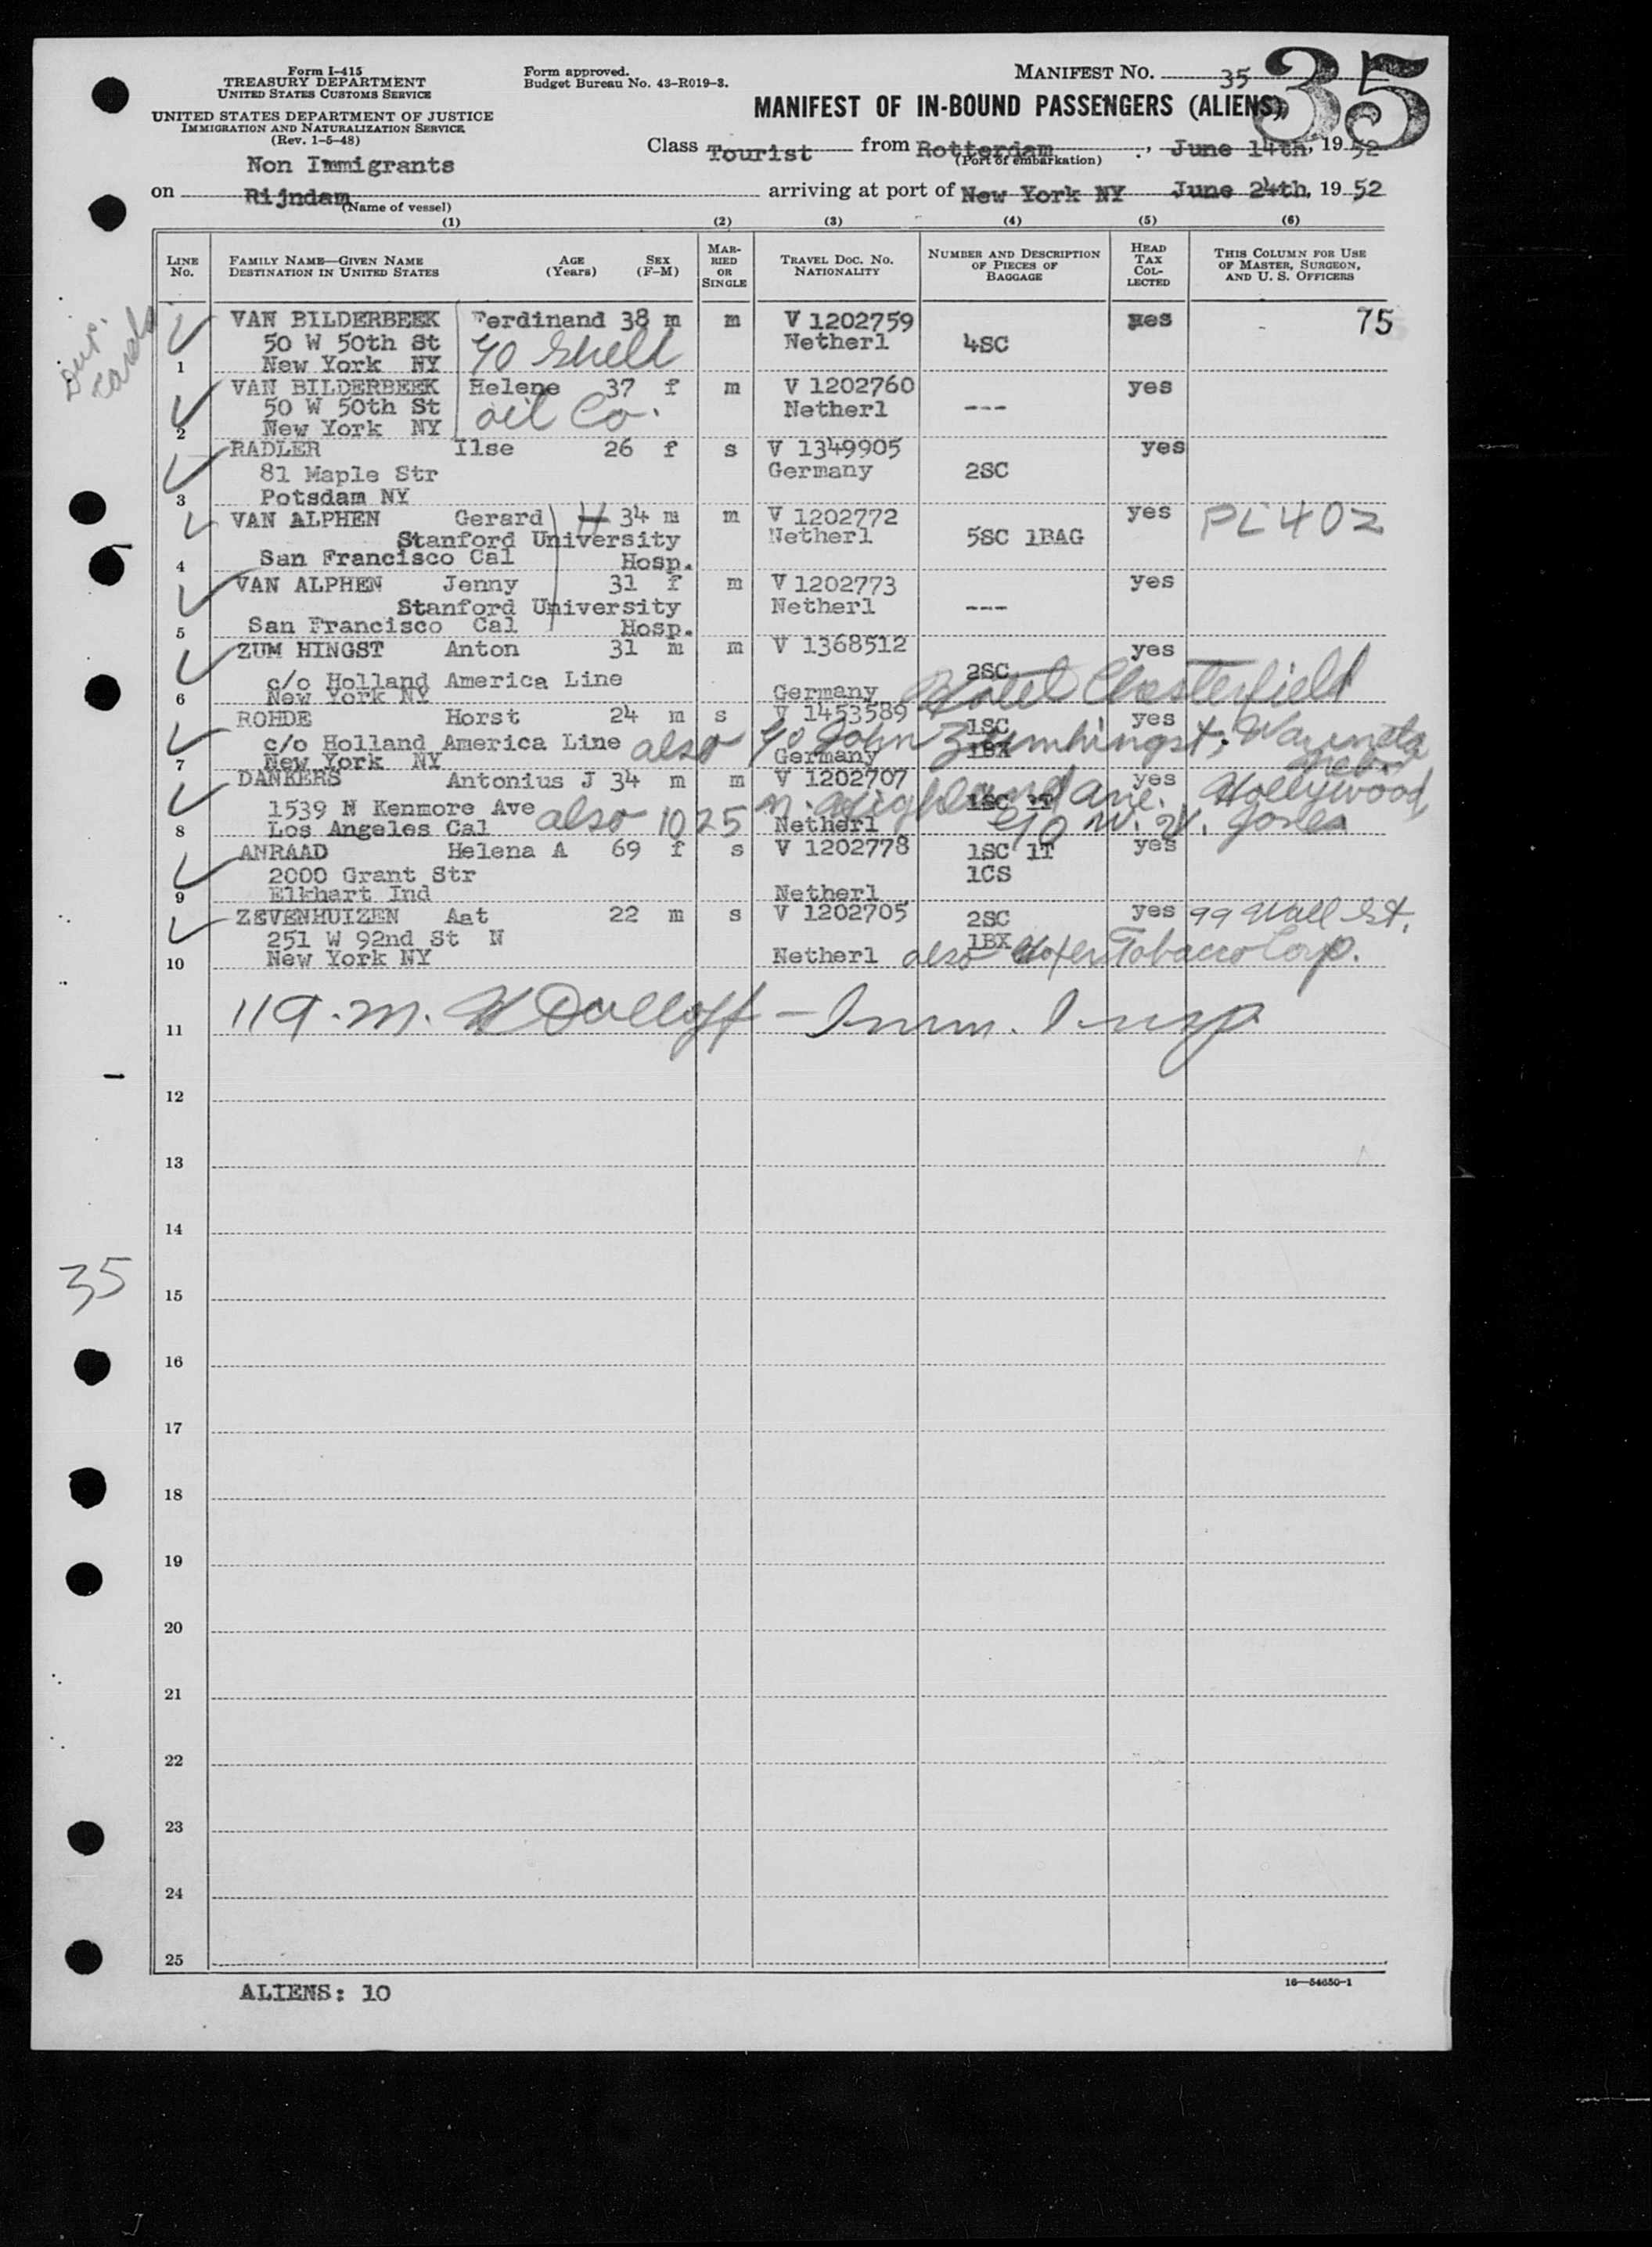 Form I-415
TREASURY DEPARTMENT
UNITED STATES CUSTOMS SERVICE
UNITED STATES DEPARTMENT OF JUSTICE
IMMIGRATION AND NATURALIZATION SERVICE
(Rev. 1-5-48)
Form approved.
Budget Bureau No. 43-R019-3.
MANIFEST NO. 35
35
MANIFEST OF IN-BOUND PASSENGERS (ALIENS)
Class Tourist from Rotterdam, June 14th, 1952
(Port of embarkation)
Non Immigrants
on Rijndam arriving at port of New York NY June 24th, 1952
(Name of vessel)
(1) (2) (3) (4) (5) (6)
LINE NO. FAMILY NAME—GIVEN NAME DESTINATION IN UNITED STATES AGE (Years) SEX (F-M) MARRIED OR SINGLE TRAVEL DOC. NO. NATIONALITY NUMBER AND DESCRIPTION OF PIECES OF BAGGAGE HEAD TAX COLLECTED THIS COLUMN FOR USE OF MASTER, SURGEON, AND U. S. OFFICERS
VAN BILDERBEEK Ferdinand 38 m m V 1202759 yes 75
50 W 50th St c/o Shell Netherl 4SC
1 New York NY
VAN BILDERBEEK Helene 37 f m V 1202760 yes
50 W 50th St oil Co. Netherl ---
2 New York NY
RADLER Ilse 26 f s V 1349905 yes
81 Maple Str Germany 2SC
3 Potsdam NY
VAN ALPHEN Gerard H 34 m m V 1202772 yes PL 402
Stanford University Netherl 5SC 1BAG
4 San Francisco Cal Hosp.
VAN ALPHEN Jenny 31 f m V 1202773 yes
Stanford University Netherl ---
5 San Francisco Cal Hosp.
ZUM HINGST Anton 31 m m V 1368512 yes
c/o Holland America Line 2SC
6 New York NY Germany Hotel Chesterfield
ROHDE Horst 24 m s V 1453589 1SC yes
c/o Holland America Line also c/o John Zumhingst, Wauneta 1BX
7 New York NY Germany Nebr
DANKERS Antonius J 34 m m V 1202707 yes
1539 N Kenmore Ave also 1025 N. Highland Ave. Hollywood, 1SC 1T
8 Los Angeles Cal Netherl c/o W. W. Jones
ANRAAD Helena A 69 f s V 1202778 1SC 1T yes
2000 Grant Str 1CS
9 Elkhart Ind Netherl
ZEVENHUIZEN Aat 22 m s V 1202705 2SC yes 99 Wall St.
251 W 92nd St N 1BX
10 New York NY Netherl also Tobacco Corp.
11 - Imm. Insp
12
13
14
15
16
17
18
19
20
21
22
23
24
25
35
ALIENS: 10
16—54650-1